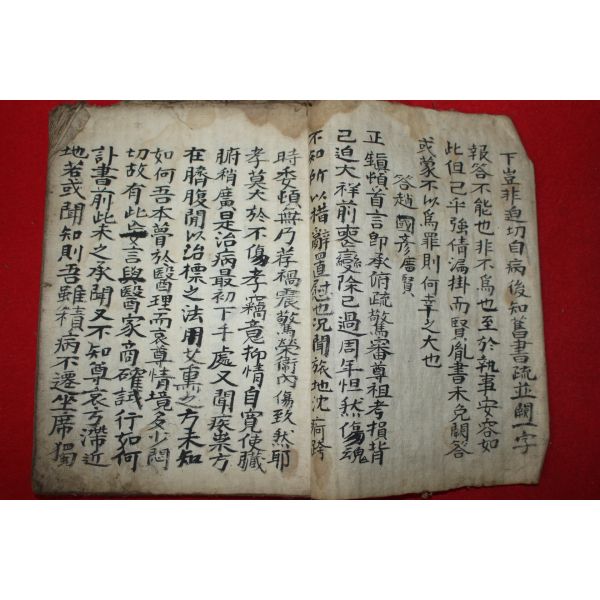 下豈非迫切自病後知舊書疏並闕一字
報答不能也非不爲也至於執事安容如
此但己乎強倩漏掛而賢胤書未免闕答
或蒙不以爲罪則何幸之大也
答趙國彦廣賢
正犢頓首言卽承俯疏驚審尊祖考損背
已迫大祥前喪變除已過周年怛然傷魂
不知所以措辭置慰也況聞旅地沈痾跨
時委頓無乃荐禍震驚榮衛內傷致然耶
孝莫大於不傷孝竊意抑情自寬使臟
腑稍廣是治病最初下手處又聞祟方
在臍腹間以治標之法用艾熏之方未知
如何吾本曾於醫理而哀尊情境多少悶
切故有此妄言與醫家商確試行如何
訃書前此未之承聞又不知尊哀方滯近
地若或聞知則吾雖積病不遷坐席獨